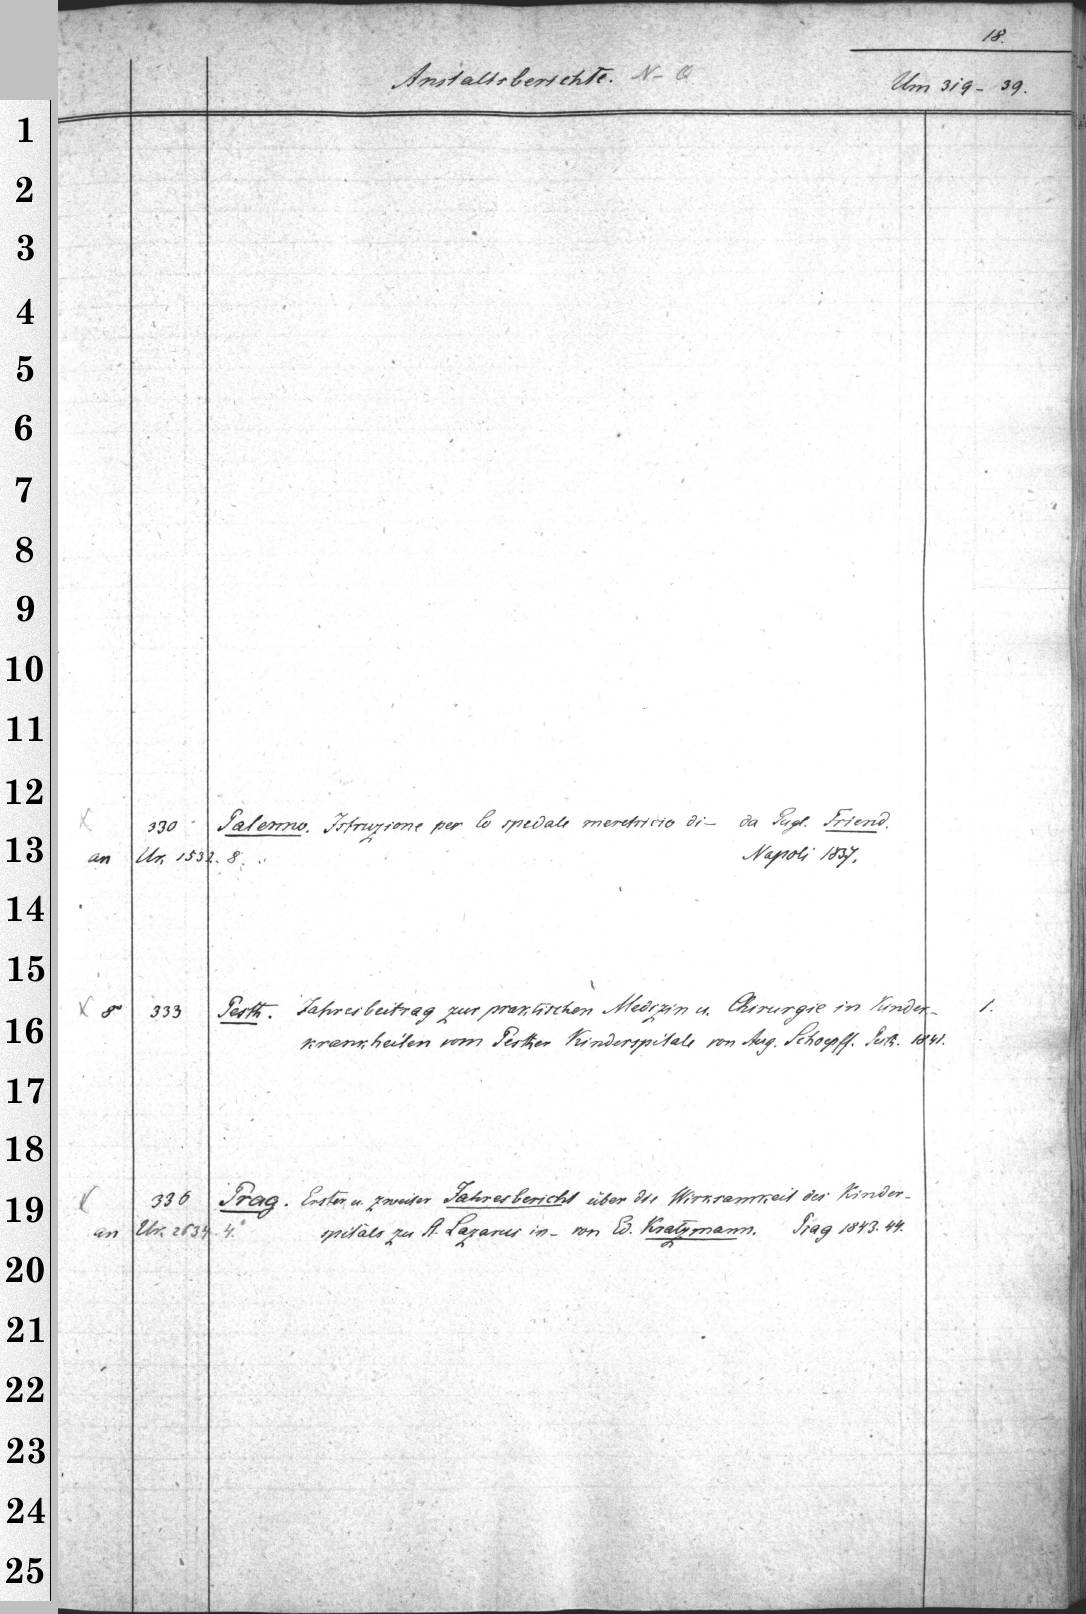 18.
Anstaltsberichte. N-Q
Um 319 - 39.
1
2
3
4
5
6
7
8
9
10
11
12
X 330 Palermo. Istruzione per lo spedale meretricio di - da Friend.
13
an Ur. 1532. 8. Napoli 1837.
14
15
X 8° 333 Pesth. Jahresbeitrag zur praktischen Medizin u. Chirurgie in Kinder- 1.
16
krankheiten vom Pesther Kinderspitale von Aug. Schoepff. Pesth. 1841.
17
18
X 336 Prag. Erster u. zweiter Jahresbericht über die Wirksamkeit des Kinder-
19
an Ur. 2634. 4° spitals zu St. Lazarus in - von Ed. Kratzmann. Prag 1843. 44.
20
21
22
23
24
25